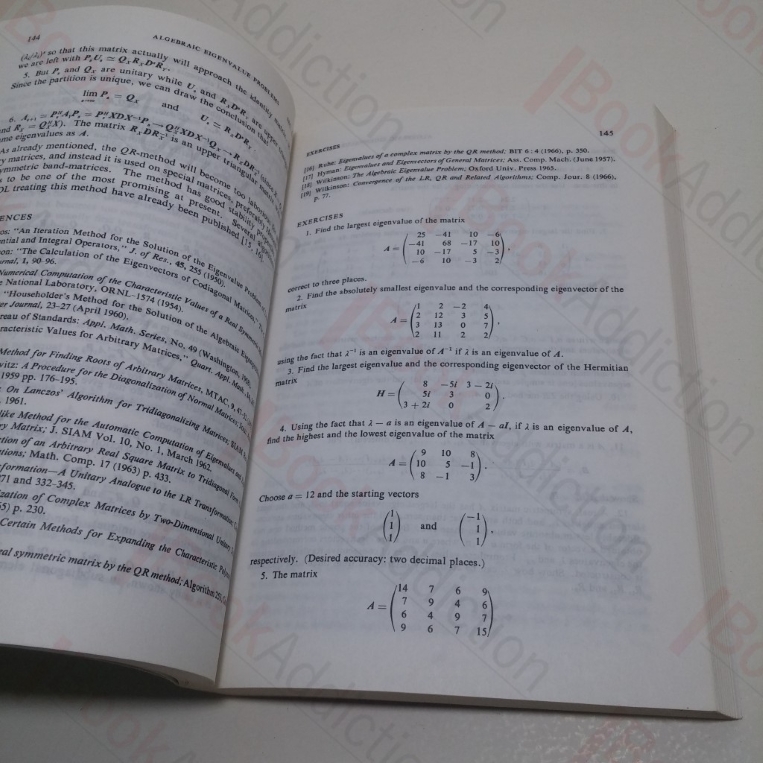 144
ALGEBRAIC EIGENVALUE PROBLEMS
so that this matrix actually will approach the identity matrix
we are left with
5. But P_s and Q_x are unitary while U_s and
Since the partition is unique, we can draw the conclusion that
lim P_s = Q_x and
The matrix is an upper triangular
me eigenvalues as A.
As already mentioned, the QR-method will become too laborious
y matrices, and instead it is used on special matrices, preferably
ymmetric band-matrices. The method has good stability
s to be one of the most promising at present. Several
OL treating this method have already been published
ENCES
os: "An Iteration Method for the Solution of the Eigenvalue Problem
ntial and Integral Operators," J. of Res., 45, 255 (1950).
on: "The Calculation of the Eigenvectors of Codiagonal Matrices,"
urnal, 1, 90-96.
Numerical Computation of the Characteristic Values of a Real Symmetric
e National Laboratory, ORNL-1574 (1954).
"Householder's Method for the Solution of the Algebraic Eigenproblem,"
er Journal, 23-27 (April 1960).
reau of Standards: Appl. Math. Series, No. 49 (Washington,
racteristic Values for Arbitrary Matrices," Quart. Appl. Math.
Method for Finding Roots of Arbitrary Matrices, MTAC 9,
vitz: A Procedure for the Diagonalization of Normal Matrices,
1959 pp. 176-195.
On Lanczos' Algorithm for Tridiagonalizing Matrices,
1961.
like Method for the Automatic Computation of Eigenvalues and
ry Matrix; J. SIAM Vol. 10, No. 1, March 1962.
tion of an Arbitrary Real Square Matrix to Tridiagonal Form
tions; Math. Comp. 17 (1963) p. 433.
formation—A Unitary Analogue to the LR Transformation
71 and 332-345.
zation of Complex Matrices by Two-Dimensional Unitary
5) p. 230.
Certain Methods for Expanding the Characteristic
eal symmetric matrix by the QR method; Algorithm
EXERCISES 145
[16] Ruhe: Eigenvalues of a complex matrix by the QR method; BIT 6:4 (1966), p. 350.
[17] Hyman: Eigenvalues and Eigenvectors of General Matrices; Ass. Comp. Mach. (June 1957).
[18] Wilkinson: The Algebraic Eigenvalue Problem, Oxford Univ. Press 1965.
[19] Wilkinson: Convergence of the LR, QR and Related Algorithms; Comp. Jour. 8 (1966),
p. 77.
EXERCISES
1. Find the largest eigenvalue of the matrix
25 -41 10 -6
A = -41 68 -17 10
10 -17 5 -3
-6 10 -3 2
correct to three places.
2. Find the absolutely smallest eigenvalue and the corresponding eigenvector of the
matrix
1 2 -2 4
A = 2 12 3 5
3 13 0 7
2 11 2 2
using the fact that λ⁻¹ is an eigenvalue of A⁻¹ if λ is an eigenvalue of A.
3. Find the largest eigenvalue and the corresponding eigenvector of the Hermitian
matrix
8 -5i 3 - 2i
H = 5i 3 0
3 + 2i 0 2
4. Using the fact that λ - a is an eigenvalue of A - aI, if λ is an eigenvalue of A,
find the highest and the lowest eigenvalue of the matrix
9 10 8
A = 10 5 -1
8 -1 3
Choose a = 12 and the starting vectors
1 -1
1 and 1
1 1
respectively. (Desired accuracy: two decimal places.)
5. The matrix
14 7 6 9
A = 7 9 4 6
6 4 9 7
9 6 7 15